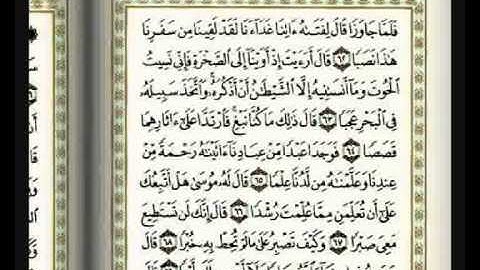 فَلَمَّا جَاوَزَا قَالَ لِفَتَىٰهُ ءَاتِنَا غَدَآءَنَا لَقَدْ لَقِينَا مِن سَفَرِنَا
هَٰذَا نَصَبًا ٦٢ قَالَ أَرَءَيْتَ إِذْ أَوَيْنَآ إِلَى ٱلصَّخْرَةِ فَإِنِّى نَسِيتُ
ٱلْحُوتَ وَمَآ أَنسَىٰنِيهُ إِلَّا ٱلشَّيْطَٰنُ أَنْ أَذْكُرَهُۥ وَٱتَّخَذَ سَبِيلَهُۥ
فِى ٱلْبَحْرِ عَجَبًا ٦٣ قَالَ ذَٰلِكَ مَا كُنَّا نَبْغِ فَٱرْتَدَّا عَلَىٰٓ ءَاثَارِهِمَا
قَصَصًا ٦٤ فَوَجَدَا عَبْدًا مِّنْ عِبَادِنَآ ءَاتَيْنَٰهُ رَحْمَةً مِّنْ
عِندِنَا وَعَلَّمْنَٰهُ مِن لَّدُنَّا عِلْمًا ٦٥ قَالَ لَهُۥ مُوسَىٰ هَلْ أَتَّبِعُكَ
عَلَىٰٓ أَن تُعَلِّمَنِ مِمَّا عُلِّمْتَ رُشْدًا ٦٦ قَالَ إِنَّكَ لَن تَسْتَطِيعَ
مَعِىَ صَبْرًا ٦٧ وَكَيْفَ تَصْبِرُ عَلَىٰ مَا لَمْ تُحِطْ بِهِۦ خُبْرًا ٦٨ قَالَ